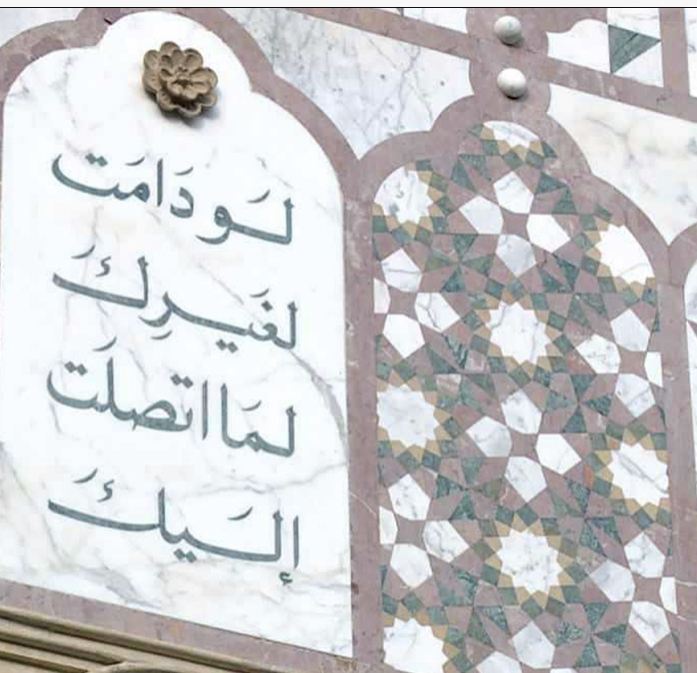 لَو دَامَت
لغَيرِكَ
لمَا اتصلَت
إليَكَ